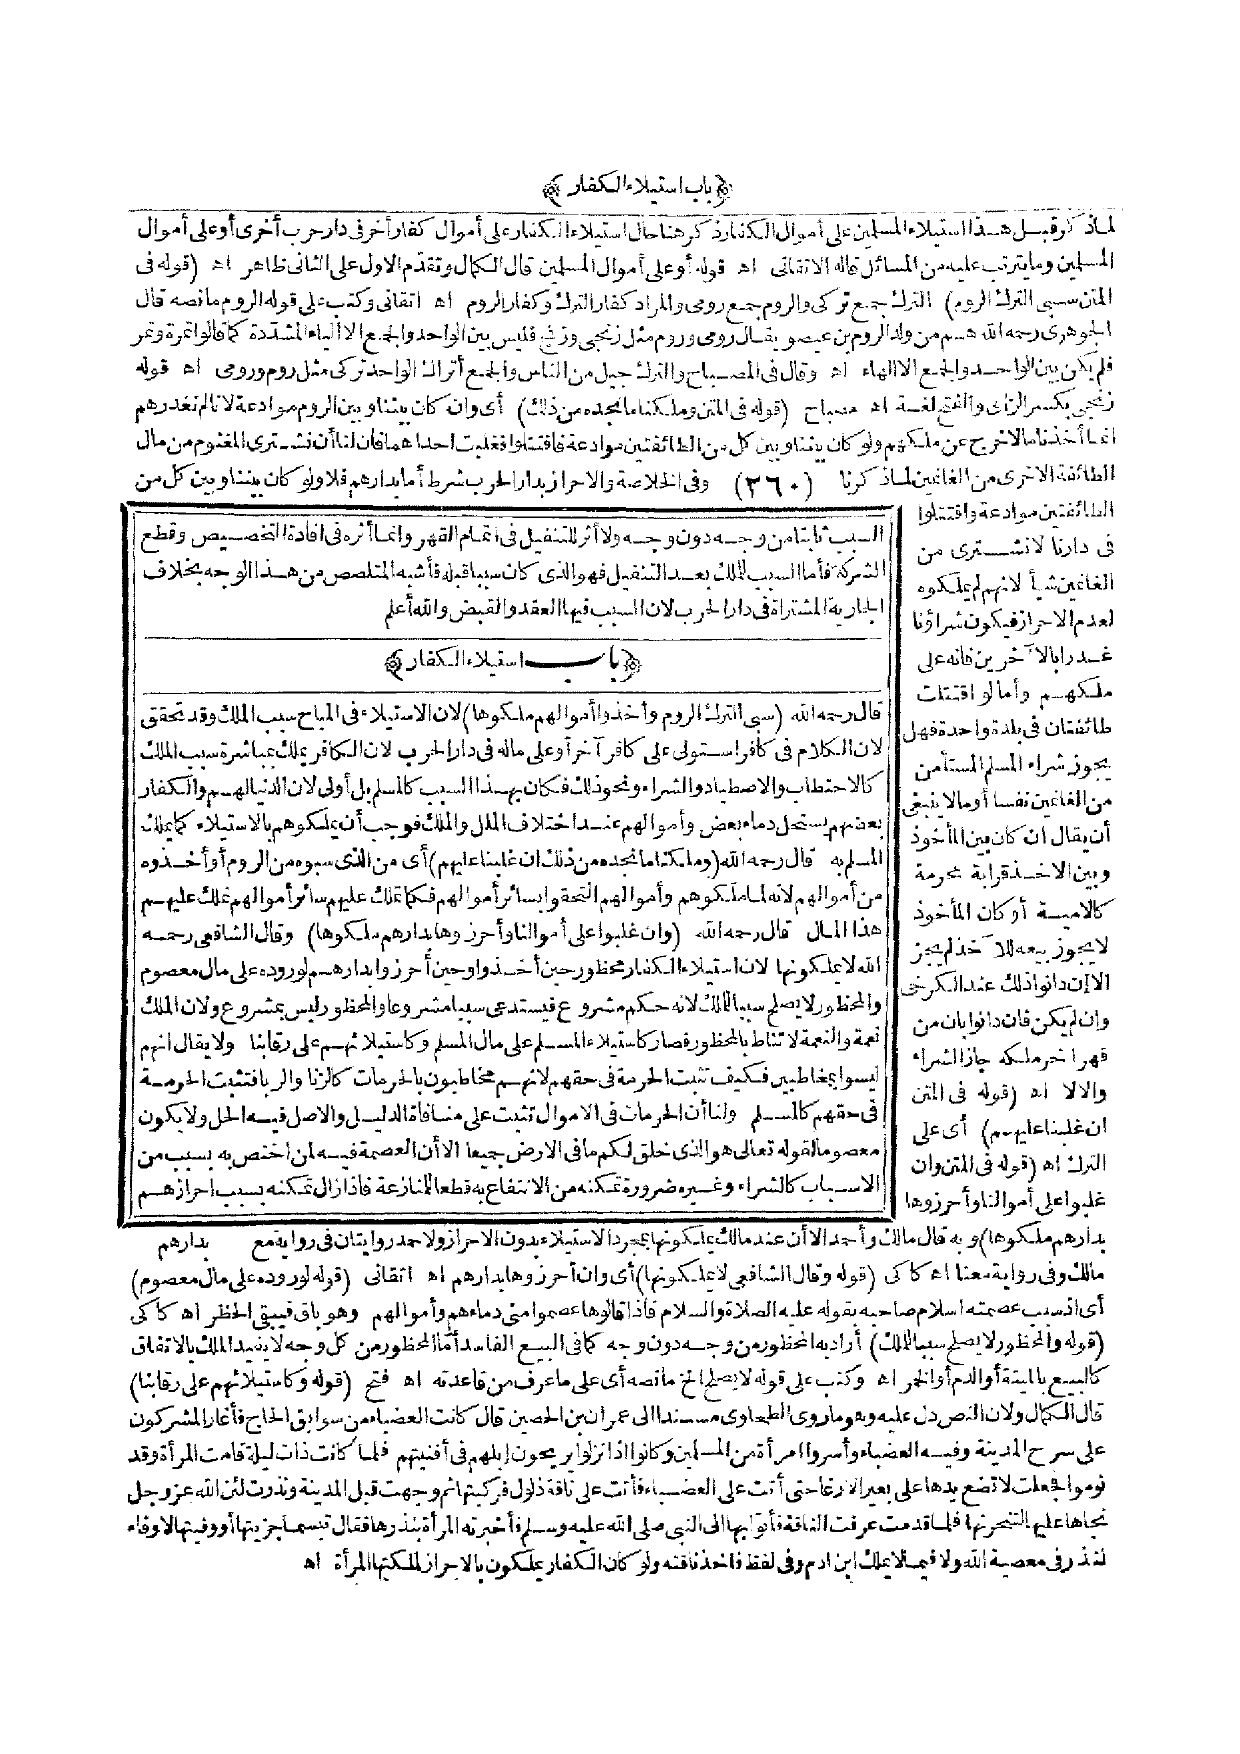 ﴿باب استيلاء الكفار﴾
لما ذكر قبل هذا استيلاء المسلمين على أموال الكفار ذكر هنا حال استيلاء الكفار على أموال كفار أخر في دار حرب أخرى أو على أموال
المسلمين وما يترتب عليه من المسائل قاله الاتقاني اه قوله أو على أموال المسلمين قال الكمال وتقدم الاول على الثاني ظاهر اه (قوله في
المتن سبى الترك الروم) الترك جمع تركى والروم جمع رومى والمراد كفار الترك وكفار الروم اه اتقانى وكتب على قوله الروم ما نصه قال
الجوهرى رحمه الله هم من ولد الروم بن عيصو يقال رومى وروم مثل زنجى وزنج فليس بين الواحد والجمع الا الياء المشددة كما قالوا تمرة وتمر
فلم يكن بين الواحد والجمع الا الهاء اه وقال فى المصباح والترك جيل من الناس والجمع أتراك الواحد تركى مثل روم ورومى اه قوله
زنجى بكسر الزاى والفتح لغة اه مصباح (قوله فى المتن وملكنا ما نجده من ذلك) أى وان كان بيننا وبين الروم موادعة لانا لم نغدرهم
انما أخذنا ما لا خرج عن ملكهم ولو كان بيننا وبين كل من الطائفتين موادعة فاقتتلوا فغلبت احداهما فان لنا أن نشترى المغنوم من مال
الطائفة الاخرى من الغانمين لما ذكرنا (٣٦٠) وفى الخلاصة والاحراز بدار الحرب شرط أما بدارهم فلا ولو كان بيننا وبين كل من
الطائفتين موادعة واقتتلوا
فى دارنا لا نشترى من
الغانمين شيأ لانهم لم يملكوه
لعدم الاحراز فيكون شراؤنا
غدرا بالآخرين فانه على
ملكهم وأما لو اقتتلت
طائفتان فى بلدة واحدة فهل
يجوز شراء المسلم المستأمن
من الغانمين نفسا أو مالا ينبغى
أن يقال ان كان بين المأخوذ
وبين الآخذ قرابة محرمة
كالامية أو كان المأخوذ
لا يجوز بيعه للآخذ لم يجز
الا ان دانوا ذلك عند الكرخى
وان لم يكن فان دانوا بان من
قهر آخر ملكه جاز الشراء
والا لا اه (قوله فى المتن
ان غلبنا عليهم) أى على
الترك اه (قوله فى المتن وان
غلبوا على أموالنا وأحرزوها
السبب ثابتا من وجه دون وجه ولا أثر للتنفيل فى اتمام القهر وانما أثره فى افادة التخصيص وقطع
الشركة فأما السبب للملك بعد التنفيل فهو الذى كان سببا قبله فأشبه المتلصص من هذا الوجه بخلاف
الجارية المشتراة فى دار الحرب لان السبب فيها العقد والقبض والله أعلم
﴿باب استيلاء الكفار﴾
قال رحمه الله (سبى الترك الروم وأخذوا أموالهم ملكوها) لان الاستيلاء فى المباح سبب الملك وقد تحقق
لان الكلام فى كافر استولى على كافر آخر أو على ماله فى دار الحرب لان الكافر يملك بمباشرة سبب الملك
كالاحتطاب والاصطياد والشراء ونحو ذلك فكان بهذا السبب كالمسلم بل أولى لان الدنيا لهم والكفار
بعضهم يستحل دماء بعض وأموالهم عند اختلاف الملل والملك فوجب أن يملكوهم بالاستيلاء كما يملك
المسلم به قال رحمه الله (وملكنا ما نجده من ذلك ان غلبنا عليهم) أى من الذى سبوه من الروم أو أخذوه
من أموالهم لانه لما ملكوهم وأموالهم التحقوا بسائر أموالهم فكما نملك عليهم سائر أموالهم نملك عليهم
هذا المال قال رحمه الله (وان غلبوا على أموالنا وأحرزوها بدارهم ملكوها) وقال الشافعى رحمه
الله لا يملكونها لان استيلاء الكفار محظور حين أخذوا وحين أحرزوا بدارهم لوروده على مال معصوم
والمحظور لا يصلح سببا للملك لانه حكم مشروع فيستدعى سببا مشروعا والمحظور ليس بمشروع ولان الملك
نعمة والنعمة لا تناط بالمحظور فصار كاستيلاء المسلم على مال المسلم وكاستيلائهم على رقابنا ولا يقال انهم
ليسوا بمخاطبين فكيف تثبت الحرمة فى حقهم لانهم مخاطبون بالحرمات كالزنا والربا فتثبت الحرمة
فى حقهم كالمسلم ولنا أن الحرمات فى الاموال تثبت على منافاة الدليل والاصل فيه الحل ولا يكون
معصوما لقوله تعالى هو الذى خلق لكم ما فى الارض جميعا الا أن العصمة فيه لمن اختص به بسبب من
الاسباب كالشراء وغيره ضرورة تمكنه من الانتفاع به قطعا للمنازعة فاذا زال تمكنه بسبب احرازهم
بدارهم ملكوها) وبه قال مالك وأحمد الا أن عند مالك يملكونها بمجرد الاستيلاء بدون الاحراز ولاحمد روايتان فى رواية مع بدارهم
مالك وفى رواية معنا اه كاكى (قوله وقال الشافعى لا يملكونها) أى وان أحرزوها بدارهم اه اتقانى (قوله لوروده على مال معصوم)
أى اذ سبب عصمته اسلام صاحبه بقوله عليه الصلاة والسلام فاذا قالوها عصموا منى دماءهم وأموالهم وهو باق فيبقى الحظر اه كاكى
(قوله والمحظور لا يصلح سببا للملك) أراد به المحظور من وجه دون وجه كما فى البيع الفاسد أما المحظور من كل وجه لا يفيد الملك بالاتفاق
كالبيع بالميتة أو الدم أو الخمر اه وكتب على قوله لا يصلح الخ ما نصه أى على ما عرف من قاعدته اه فتح (قوله وكاستيلائهم على رقابنا)
قال الكمال ولان النص دل عليه وهو ما روى الطحاوى مسندا الى عمران بن الحصين قال كانت العضباء من سوابق الحاج فأغار المشركون
على سرح المدينة وفيه العضباء وأسروا امرأة من المسلمين وكانوا اذا نزلوا يريحون إبلهم فى أفنيتهم فلما كانت ذات ليلة قامت المرأة وقد
نوموا فجعلت لا تضع يدها على بعير الا رغا حتى أتت على العضباء فأتت على ناقة ذلول فركبتها ثم وجهت قبل المدينة ونذرت لئن الله عز وجل
نجاها عليها لتنحرنها فلما قدمت عرفت الناقة فأتوا بها الى النبى صلى الله عليه وسلم فأخبرته المرأة بنذرها فقال بئسما جزيتها أو وفيتها لا وفاء
لنذر فى معصية الله ولا فيما لا يملك ابن آدم وفى لفظ فأخذ ناقته ولو كان الكفار يملكون بالاحراز لملكتها المرأة اه